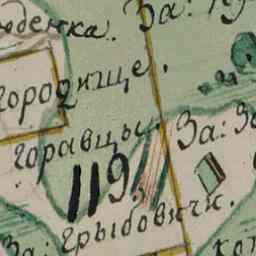 юденка. За:
городище.
горавцы. За:
119.
За: грыбовичи.